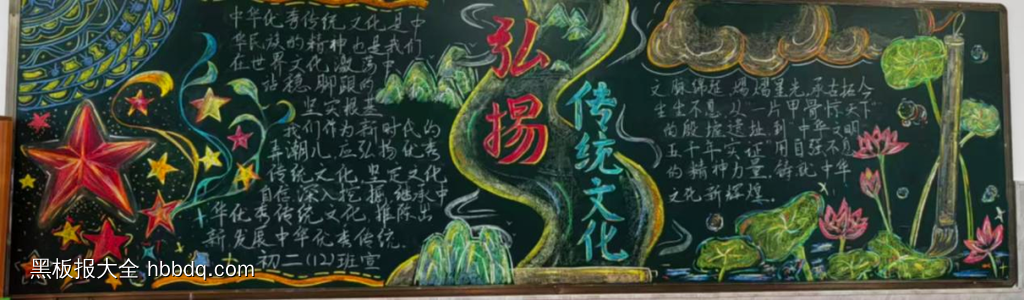 中华优秀传统文化是中
华民族的精神也是我们
在世界文化激荡中
站稳脚跟的
坚实根基
我们作为新时代的
弄潮儿应弘扬优秀
传统文化坚定文化
自信深入挖掘继承中
华优秀传统文化推陈出
新发展中华优秀传统
初二(12)班宣
弘揚
传统文化
文脉绵延熠熠生光承古拓今
生生不息从一片甲骨惊天下
的殷墟遗址到中华文明
五千年实证用自强不息
的精神力量铸化中华
文化新辉煌
黑板报大全 hbbdq.com